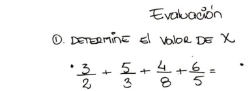 Evaluación
①. DETERMINE El Valor DE X
• 3/2 + 5/3 + 4/8 + 6/5 = •